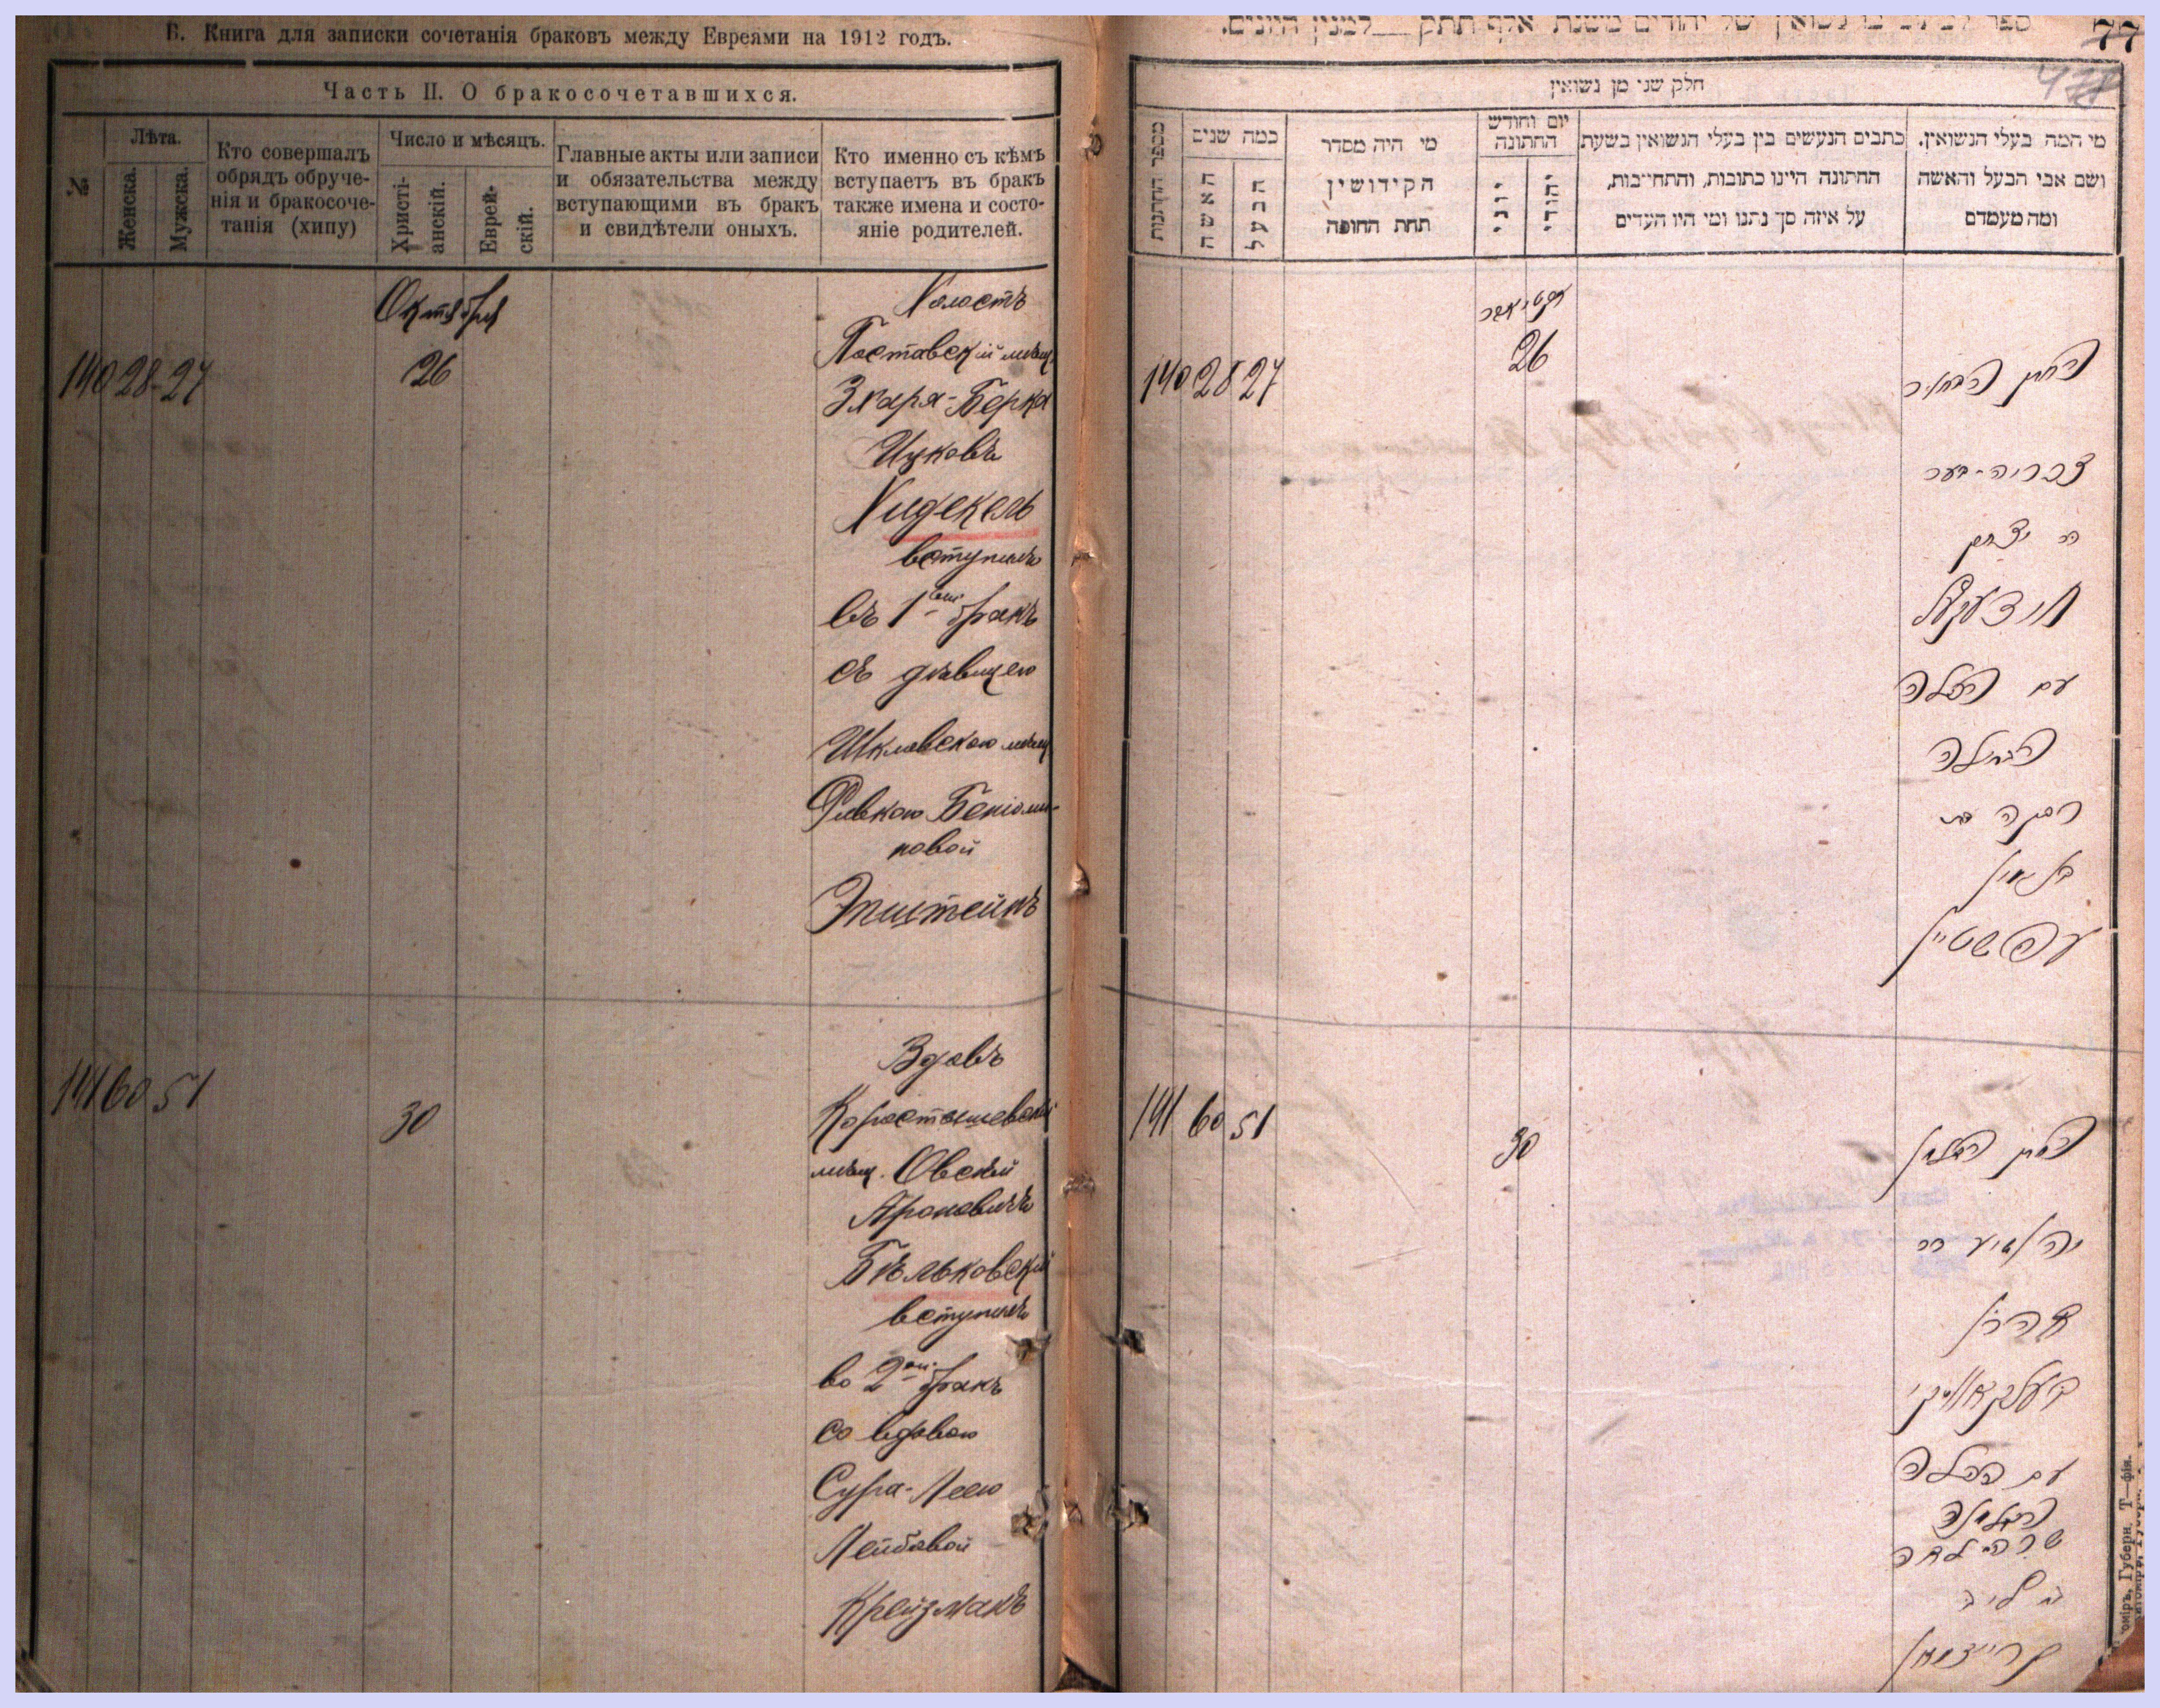 Б. Книга для записки сочетанія браковъ между Евреями на 1912 годъ.
Часть II. О бракосочетавшихся.
№
Лѣта.
Женска.
Мужска.
Кто совершалъ
обрядъ обруче-
нія и бракосоче-
танія (хипу)
Число и мѣсяцъ.
Христі-
анскій.
Еврей-
скій.
Главные акты или записи
и обязательства между
вступающими въ бракъ
и свидѣтели оныхъ.
Кто именно съ кѣмъ
вступаетъ въ бракъ
также имена и состо-
яніе родителей.
Октября
140 28 - 27
26
Холостъ
Поставскій мѣщ.
Зхаря-Берка
Ицковъ
Хидекель
вступилъ
въ 1ый бракъ
съ дѣвицею
Шкловскою мѣщ
Ривкою Беніоми-
новой
Эпштейнъ
141 60 51
30
Вдовъ
Коростышевскій
мѣщ. Овсѣй
Ароновичъ
Бѣльковскій
вступилъ
во 2ой бракъ
со вдовою
Сура-Леею
Лейбовой
Крейзманъ
77
חלק שני מן נשואין
מספר החתונות
כמה שנים
האשה
הבעל
מי היה מסדר
הקידושין
תחת החופה
יום וחודש
החתונה
יוני
יהודי
כתבים הנעשים בין בעלי הנשואין בשעת
החתונה היינו כתובות, והתחייבות,
על איזה סך נתנו ומי היו העדים
מי המה בעלי הנשואין.
ושם אבי הבעל והאשה
ומה מעמדם
140 28 27
26
החתן הבחור
זכריה-בער
בר יצחק
חידעקעל
עם הכלה
הבתולה
רבקה בת
בנימין
עפשטיין
141 60 51
30
החתן האלמן
יהושיע בר
אהרן
בעלקאווסקי
עם הכלה
האלמנה
שרה-לאה
ב ליב
קרייזמאן